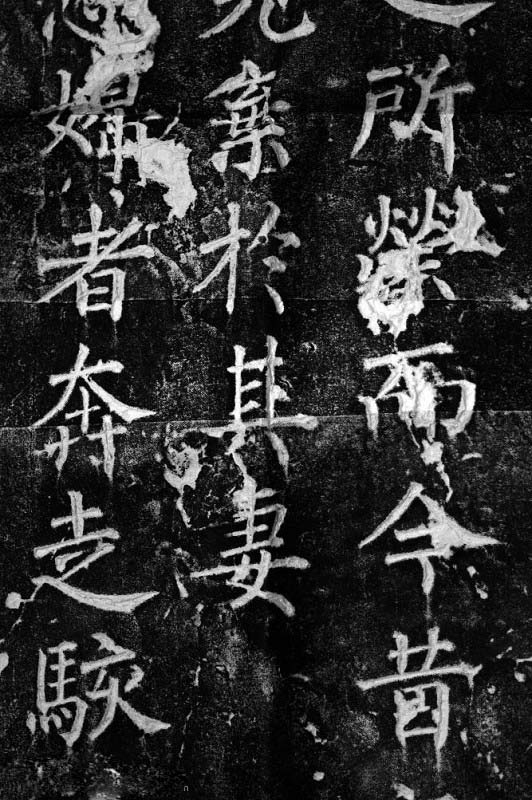 所榮而今昔
棄扵其妻
婦者奔走駭